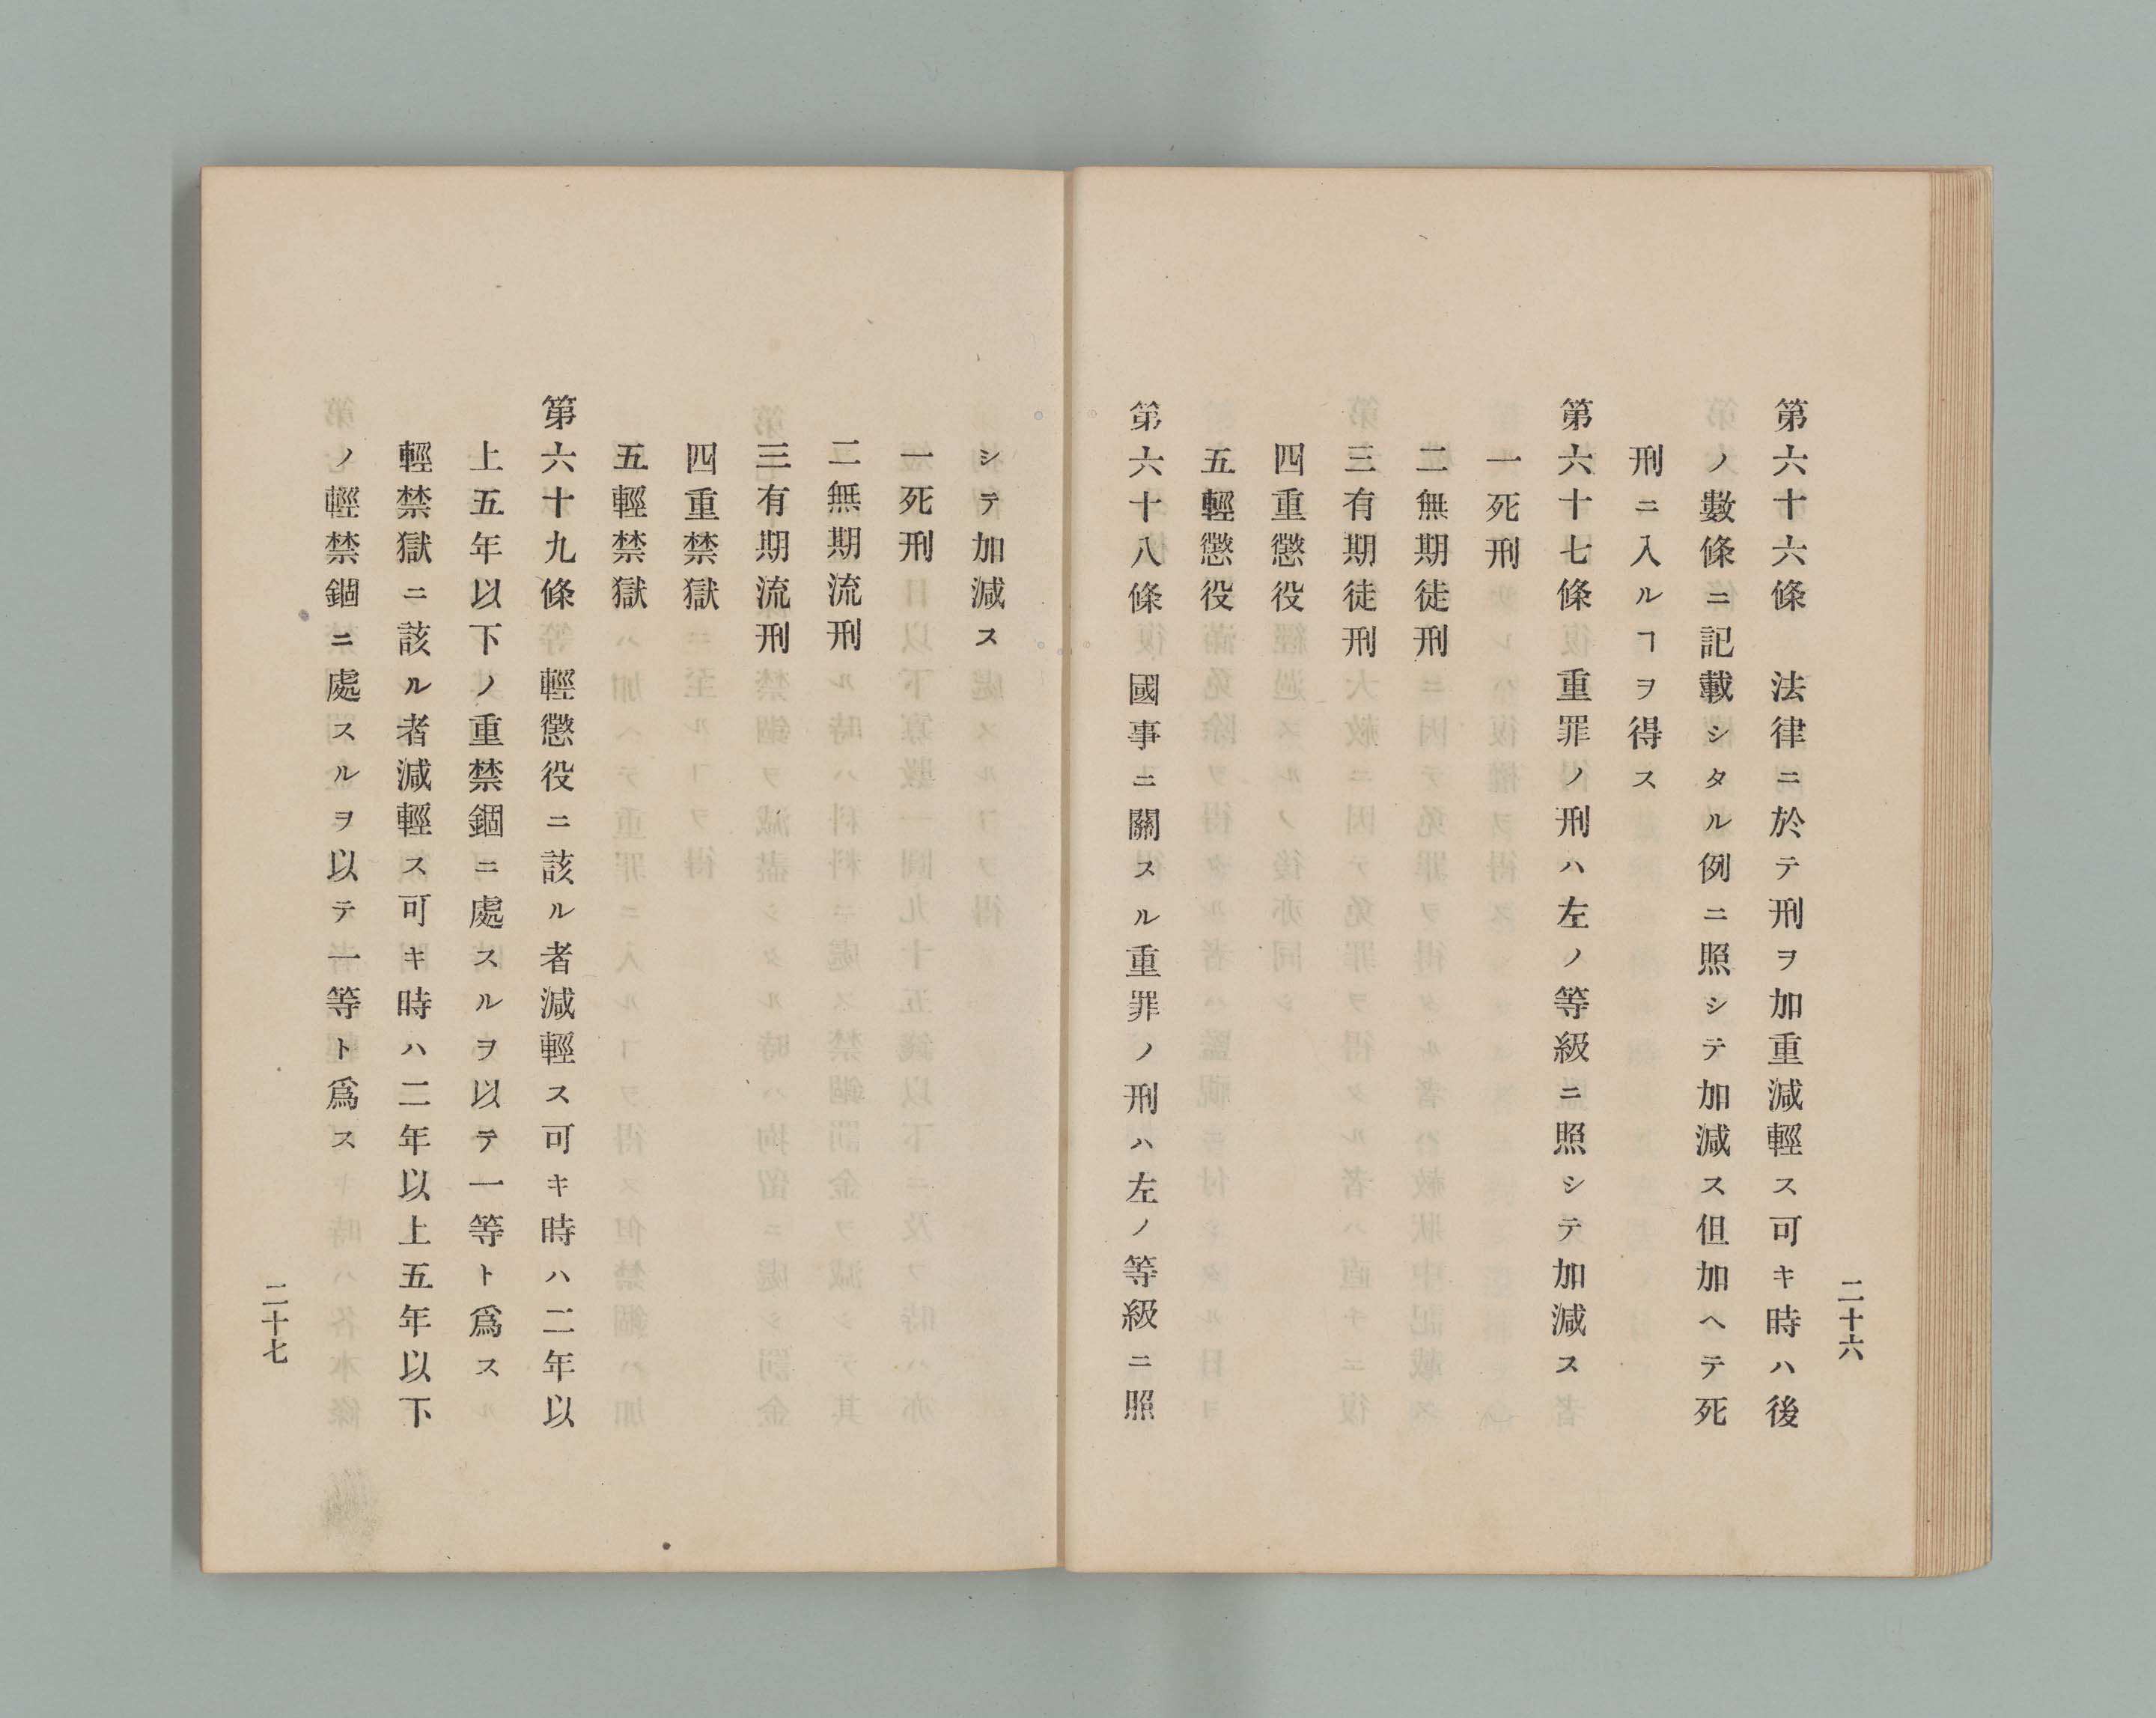 第六十六條　法律ニ於テ刑ヲ加重減輕ス可キ時ハ後
ノ數條ニ記載シタル例ニ照シテ加減ス但加ヘテ死
刑ニ入ルヿヲ得ス
第六十七條　重罪ノ刑ハ左ノ等級ニ照シテ加減ス
一死刑
二無期徒刑
三有期徒刑
四重懲役
五輕懲役
第六十八條　國事ニ關スル重罪ノ刑ハ左ノ等級ニ照
二十六
シテ加減ス
一死刑
二無期流刑
三有期流刑
四重禁獄
五輕禁獄
第六十九條　輕懲役ニ該ル者減輕ス可キ時ハ二年以
上五年以下ノ重禁錮ニ處スルヲ以テ一等ト爲ス
輕禁獄ニ該ル者減輕ス可キ時ハ二年以上五年以下
ノ輕禁錮ニ處スルヲ以テ一等ト爲ス
二十七